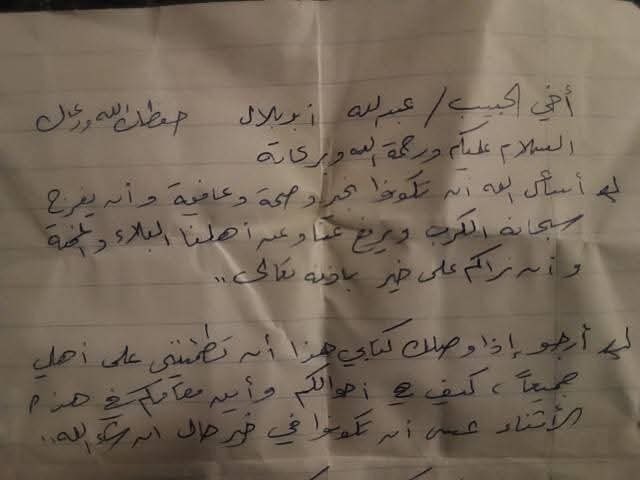 أخي الحبيب / عبدالله أبو بلال حفظك الله ورعاك
السلام عليكم ورحمة الله وبركاته
أسأل الله أن تكونوا بخير وصحة وعافية وأن يفرج
سبحانه الكرب ويرفع عنا وعن أهلنا البلاء والمحنة
وأن نراكم على خير بإذنه تعالى..
أرجو إذا وصلك كتابي هذا أن تطمئني على أهلي
جميعاً، كيف هي أحوالكم وأين مقامكم في هذه
الأثناء عسى أن تكونوا في خير حال إن شاء الله..